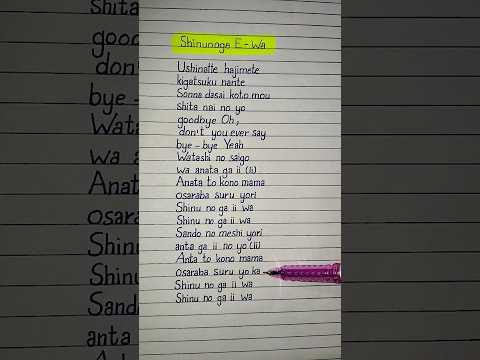 Shinunoga E-wa
Ushinatte hajimete
kigatsuku nante
Sonna dasai koto mou
shita nai no yo
goodbye Oh,
don't you ever say
bye-bye Yeah
Watashi no saigo
wa anata ga ii (Ii)
Anata to kono mama
osaraba suru yori
Shinu no ga ii wa
Shinu no ga ii wa
Sando no meshi yori
anta ga ii no yo (Ii)
Anta to kono mama
osaraba suru yo ka
Shinu no ga ii wa
Shinu no ga ii wa